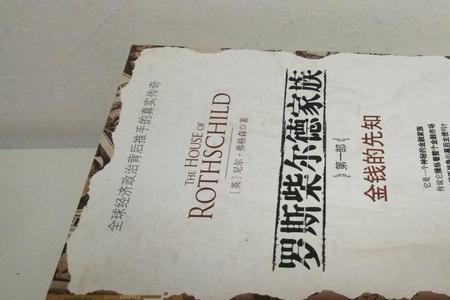 全球经济政治背后推手的真实传奇
THE HOUSE OF
ROTHSCHILD
[英] 尼尔·弗格森 著
罗斯柴尔德家族
第一部
金钱的先知
它是一个神秘的金融家族
传说它操纵着整个金融市场